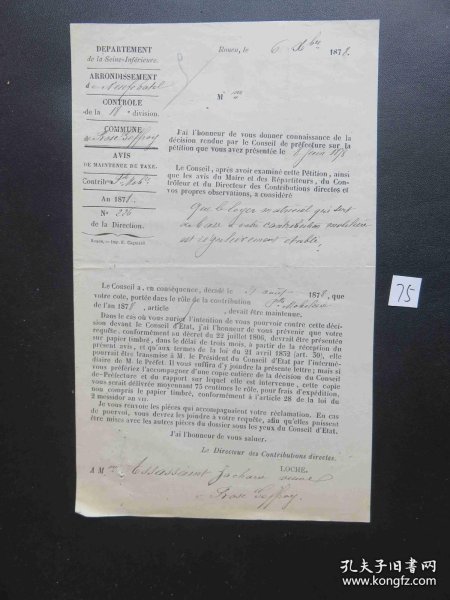 DÉPARTEMENT
de la Seine-Inférieure.
ARRONDISSEMENT
de Neufchâtel
CONTROLE
de la 18e division.
COMMUNE
AVIS
DE MAINTENUE DE TAXE.
An 1878.
No 226
de la Direction.
Rouen, le 6 Xbre 1878.
M
J'ai l'honneur de vous donner connaissance de la
décision rendue par le Conseil de préfecture sur la
pétition que vous avez présentée le juin 1878
Le Conseil, après avoir examiné cette Pétition, ainsi
que les avis du Maire et des Répartiteurs, du Con-
trôleur et du Directeur des Contributions directes et
vos propres observations, a considéré
Que le loyer matriciel qui sert
de base à votre contribution mobilière
est régulièrement établi.
Le Conseil a, en conséquence, décidé le août 1878, que
votre cote, portée dans le rôle de la contribution
de l'an 1878, article , devait être maintenue.
Dans le cas où vous auriez l'intention de vous pourvoir contre cette déci-
sion devant le Conseil d'Etat, j'ai l'honneur de vous prévenir que votre
requête, conformément au décret du 22 juillet 1806, devrait être présentée
sur papier timbré, dans le délai de trois mois, à partir de la réception du
présent avis, et qu'aux termes de la loi du 21 avril 1832 (art. 30), elle
pourrait être transmise à M. le Président du Conseil d'Etat par l'intermé-
diaire de M. le Préfet. Il vous suffira d'y joindre la présente lettre; mais si
vous préfériez l'accompagner d'une copie entière de la décision du Conseil
de-Préfecture et du rapport sur lequel elle est intervenue, cette copie
vous serait délivrée moyennant 75 centimes le rôle, pour frais d'expédition,
non compris le papier timbré, conformément à l'article 28 de la loi du
2 messidor an VII.
Je vous renvoie les pièces qui accompagnaient votre réclamation. En cas
de pourvoi, vous devrez les joindre à votre requête, afin qu'elles puissent
être mises avec les autres pièces du dossier sous les yeux du Conseil d'Etat.
J'ai l'honneur de vous saluer.
Le Directeur des Contributions directes,
LOCHE.
A M
75
孔夫子旧书网
www.kongfz.com